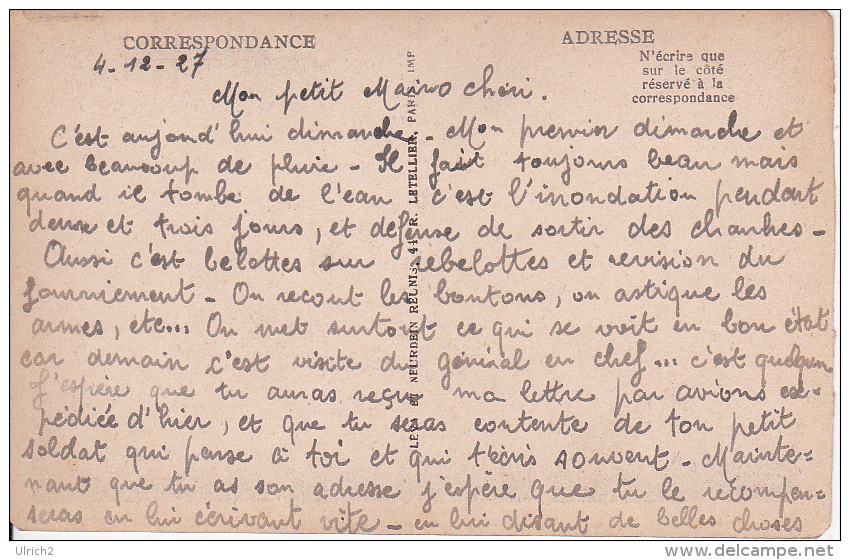 CORRESPONDANCE
ADRESSE
N'écrire que
sur le côté
réservé à la
correspondance
4-12-27
Mon petit cheri.
C'est aujourd'hui dimanche - Mon premier dimanche et
avec beaucoup de pluie - Il fait toujours beau mais
quand il tombe de l'eau c'est l'inondation pendant
deux et trois jours, et défense de sortir des chambres -
Aussi c'est belottes sur rebelottes et revision du
fourniement - On recout les boutons, on astique les
armes, etc... On met surtout ce qui se voit en bon état
car demain c'est visite du général en chef... c'est quelqu'un
J'espère que tu auras reçu ma lettre par avions ex=
pédiée d'hier, et que tu seras contente de ton petit
soldat qui pense à toi et qui t'écris souvent - Mainte=
nant que tu as son adresse j'espère que tu le récompen=
seras en lui écrivant vite - en lui disant de belles choses
LEVY ET NEURDEIN RÉUNIS, 44, R. LETELLIER, PARIS, IMP
Ulrich2
delcampe.net